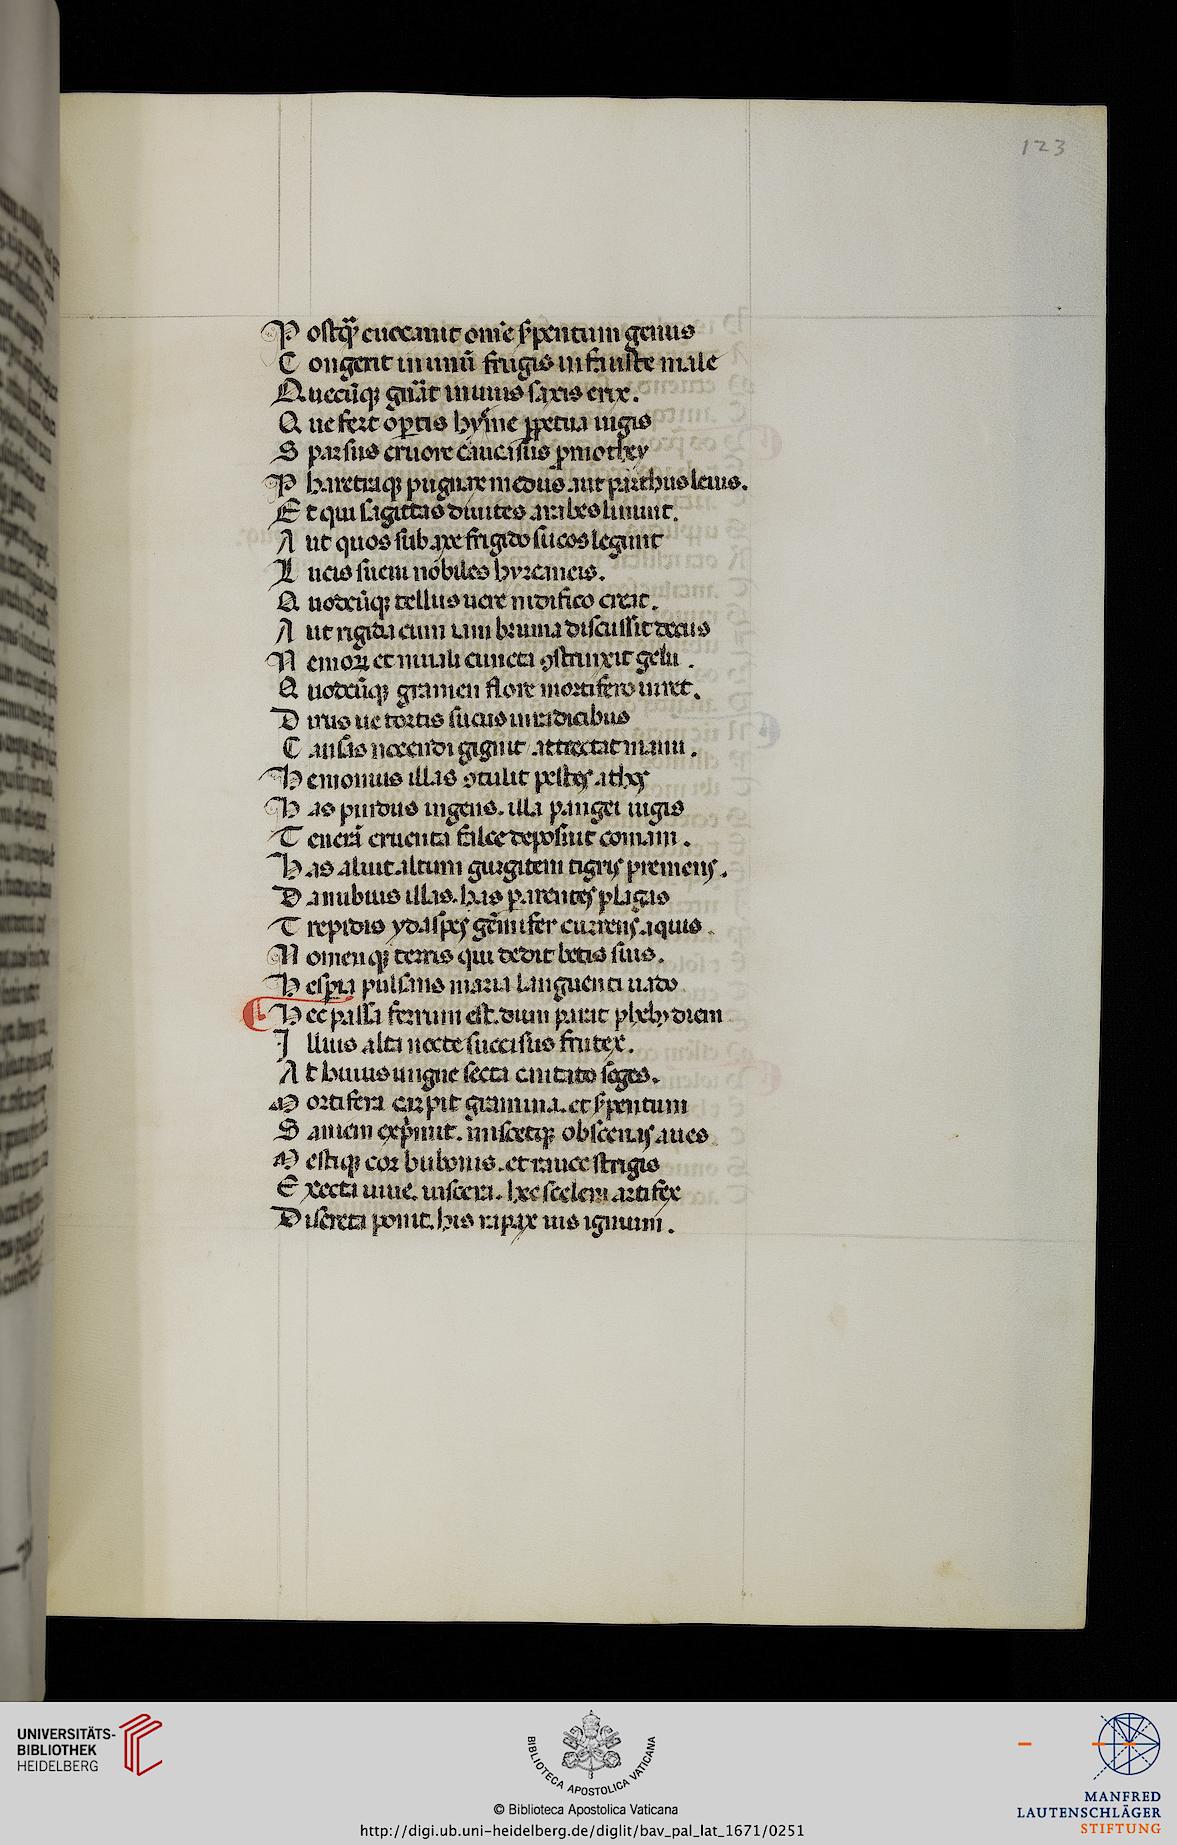 123
P ostq̃ euocauit om̃e ẜpentum genus
C ongerit in unũ frugis infauste male
Q uecũq; gñat inuius saxis erix.
Q ue fert optis hyẽme ꝑpetua iugis
S parsus cruore caucasus pmothey
P haretraq; pugnax medus aut parthus leuis.
E t qui sagittas diuites arabes linunt.
A ut quos sub axe frigido sucos legunt
L ucis sueui nobiles hyrcaneis.
Q uodcũq; tellus uere nidifico creat.
A ut rigida cum iam bruma discussit decus
N emorꝝ et niuali cuncta ꝯstrinxit gelu .
Q uodcũq; gramen flore mortifero uiret.
D irus ue tortis sucus in radicibus
C ausas nocendi gignit attrectat manu .
H emonius illas ꝯtulit pestes athes
H as pindus ingens. illa pangei iugis
T enerã cruenta falce deposuit comam .
H as aluit altum gurgitem tigris premens.
D anubius illas. has p arentes plagas
T repidis ydaspes gẽmifer currens aquis .
N omenq; terris qui dedit betis suis.
H espia pulsans maria languenti uado
H ec passa ferrum est. dum parat phebus diem
I llius alta nocte succisus frutex.
A t huius ungue secta cantato seges.
M ortifera carpit gramina. et ẜpentum
S aniem exp̃mit. miscetq; obscenas aues
M estiq; cor bubonis. et rauce strigis
E xecta uiue. uiscera. hec scelerum artifex
D iscreta ponit. his rapax uis ignium .
UNIVERSITÄTS-
BIBLIOTHEK
HEIDELBERG
BIBLIOTECA APOSTOLICA VATICANA
© Biblioteca Apostolica Vaticana
http://digi.ub.uni-heidelberg.de/diglit/bav_pal_lat_1671/0251
MANFRED
LAUTENSCHLÄGER
STIFTUNG